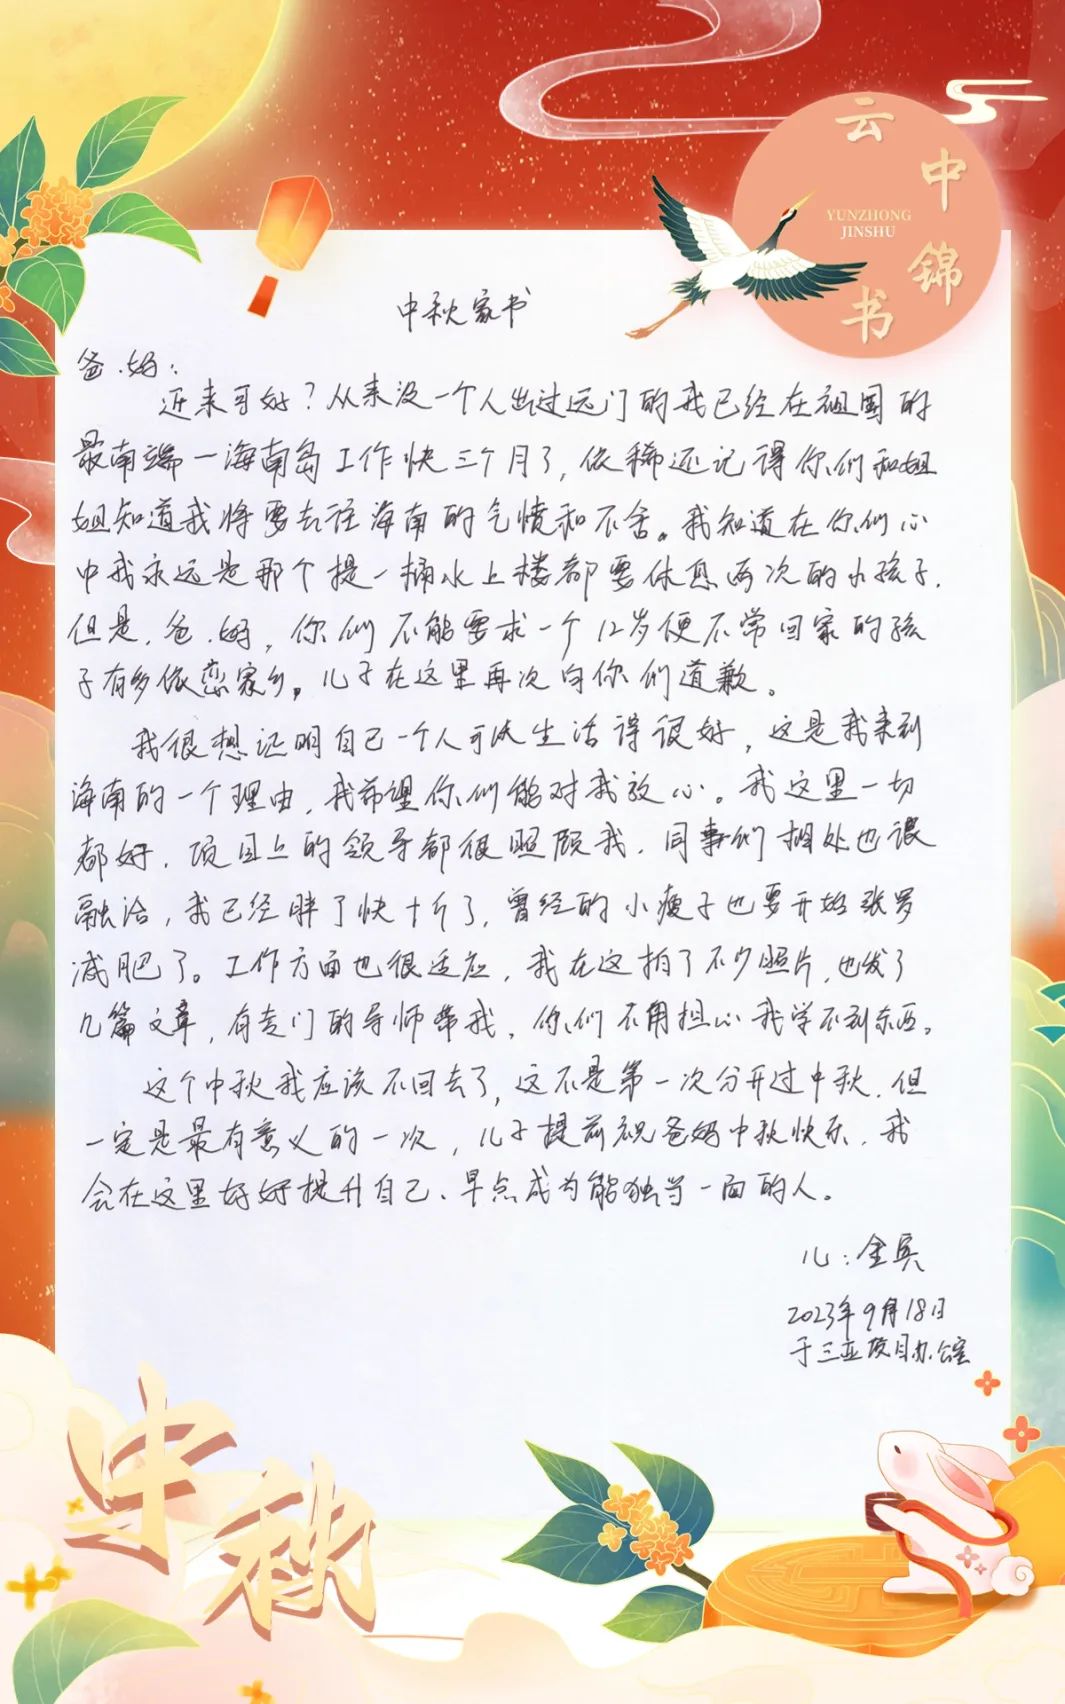 云中锦书
YUNZHONG
JINSHU
中秋家书
爸.妈：
近来可好？从来没一个人出过远门的我已经在祖国的
最南端一海南岛工作快三个月了，依稀还记得你们和姐
姐知道我将要去往海南的气愤和不舍。我知道在你们心
中我永远是那个提一桶水上楼都要休息两次的小孩子.
但是.爸.妈，你们不能要求一个12岁便不常回家的孩
子有多依恋家乡。儿子在这里再次向你们道歉。
我很想证明自己一个人可以生活得很好，这是我来到
海南的一个理由，我希望你们能对我放心。我这里一切
都好，项目上的领导都很照顾我，同事们相处也很
融洽，我已经胖了快十斤了，曾经的小瘦子也要开始张罗
减肥了。工作方面也很适应，我在这拍了不少照片，也发了
几篇文章，有专门的导师带我，你们不用担心我学不到东西。
这个中秋我应该不回去了，这不是第一次分开过中秋.但
一定是最有意义的一次，儿子提前祝爸妈中秋快乐，我
会在这里好好提升自己、早点成为能独当一面的人。
儿：金
2023年9月18日
于三亚项目办公室
中秋